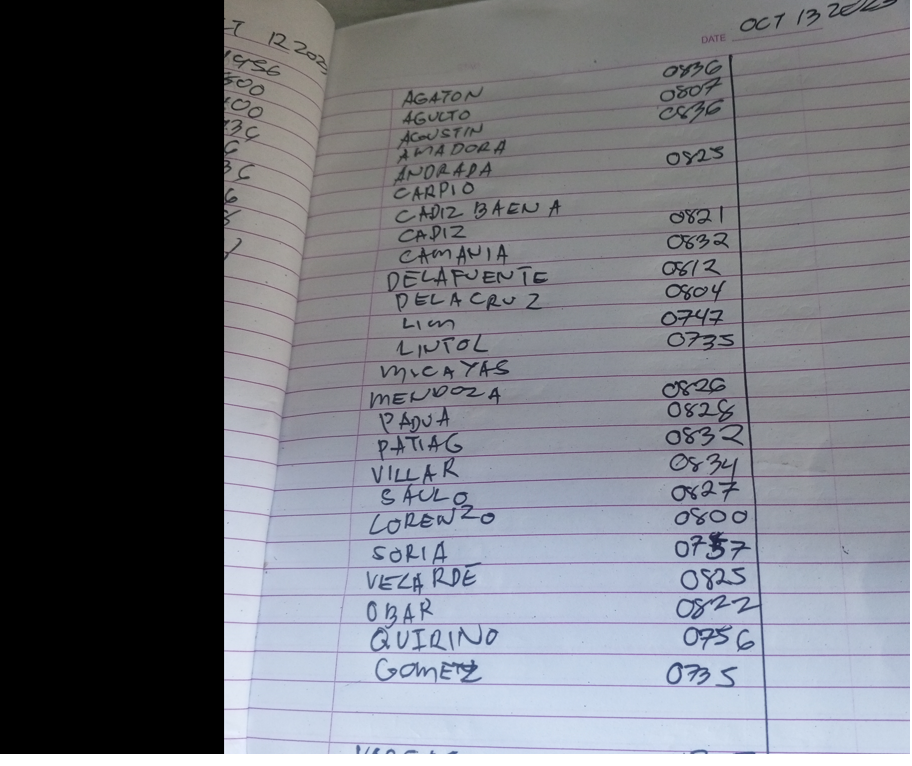 12 2025
OCT 13 2025
DATE
AGATON 0836
AGULTO 0807
AGUSTIN 0836
AMADORA
ANDRADA 0825
CARPIO
CADIZ BAENA
CADIZ 0821
CAMANIA 0832
DELAFUENTE 0812
DELACRUZ 0804
LIM 0747
LINTOL 0735
MICAYAS
MENDOZA 0826
PADUA 0828
PATIAG 0832
VILLAR 0834
SAULO 0827
LORENZO 0800
SORIA 0757
VELARDE 0825
OBAR 0822
QUIRINO 0756
GOMEZ 0735